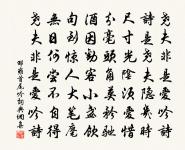 堯夫非是愛吟詩
詩是堯夫隱幾時
尺寸光陰須愛惜
分毫頭角莫矜馳
酒因勸客小盞飲
句到驚人大筆麾
無日何嘗不
堯夫非是愛吟詩
邵雍首尾吟詞典網集